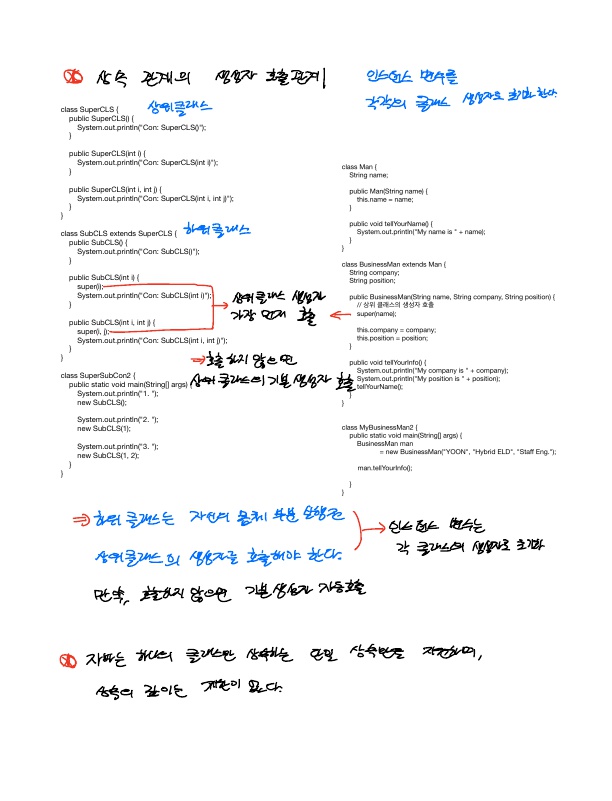 상속 관계의 생성자 호출관계
인스턴스 변수를
각각의 클래스 생성자로 초기화 한다.
class SuperCLS { 상위클래스
public SuperCLS() {
System.out.println("Con: SuperCLS()");
}
public SuperCLS(int i) {
System.out.println("Con: SuperCLS(int i)");
}
public SuperCLS(int i, int j) {
System.out.println("Con: SuperCLS(int i, int j)");
}
}
class SubCLS extends SuperCLS { 하위클래스
public SubCLS() {
System.out.println("Con: SubCLS()");
}
public SubCLS(int i) {
super(i);
System.out.println("Con: SubCLS(int i)");
}
public SubCLS(int i, int j) {
super(i, j);
System.out.println("Con: SubCLS(int i, int j)");
}
}
상위클래스 생성자
가장 먼저 호출
⇒ 호출하지 않으면
상위클래스의 기본 생성자 호출
class SuperSubCon2 {
public static void main(String[] args)
System.out.println("1. ");
new SubCLS();
System.out.println("2. ");
new SubCLS(1);
System.out.println("3. ");
new SubCLS(1, 2);
}
}
class Man {
String name;
public Man(String name) {
this.name = name;
}
public void tellYourName() {
System.out.println("My name is " + name);
}
}
class BusinessMan extends Man {
String company;
String position;
public BusinessMan(String name, String company, String position) {
// 상위 클래스의 생성자 호출
super(name);
this.company = company;
this.position = position;
}
public void tellYourInfo() {
System.out.println("My company is " + company);
System.out.println("My position is " + position);
tellYourName();
}
}
class MyBusinessMan2 {
public static void main(String[] args) {
BusinessMan man
= new BusinessMan("YOON", "Hybrid ELD", "Staff Eng.");
man.tellYourInfo();
}
}
⇒ 하위 클래스는 자신의 몸체 부분 실행전
상위클래스의 생성자를 호출해야 한다.
→ 인스턴스 변수는
각 클래스의 생성자로 초기화
만약, 호출하지 않으면 기본 생성자 자동호출
자바는 하나의 클래스만 상속하는 단일 상속만을 지원하며,
상속의 깊이는 제한이 없다.